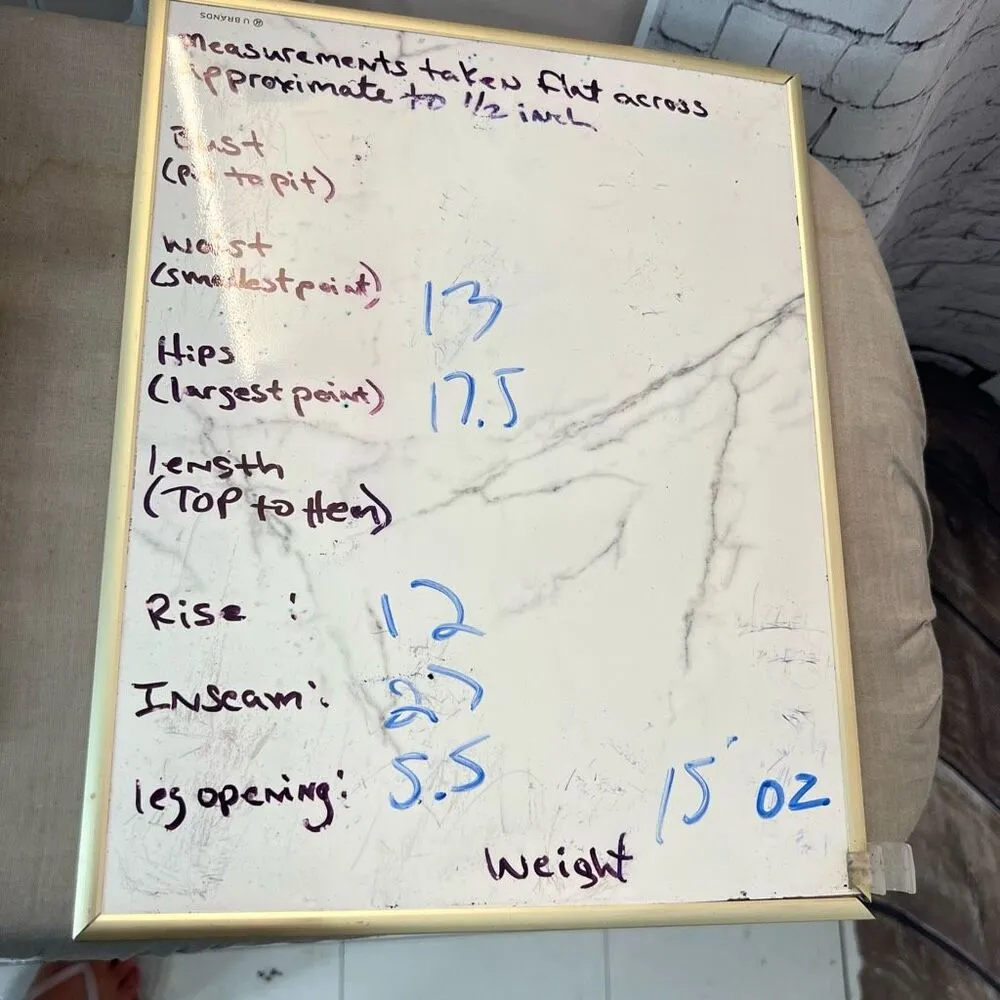 U BRANDS
Measurements taken flat across
approximate to 1/2 inch
Bust
(pit to pit)
Waist
(smallest point) 13
Hips
(largest point) 17.5
length
(TOP to Hem)
Rise : 12
INseam: 27
leg opening: 5.5
15 oz.
Weight